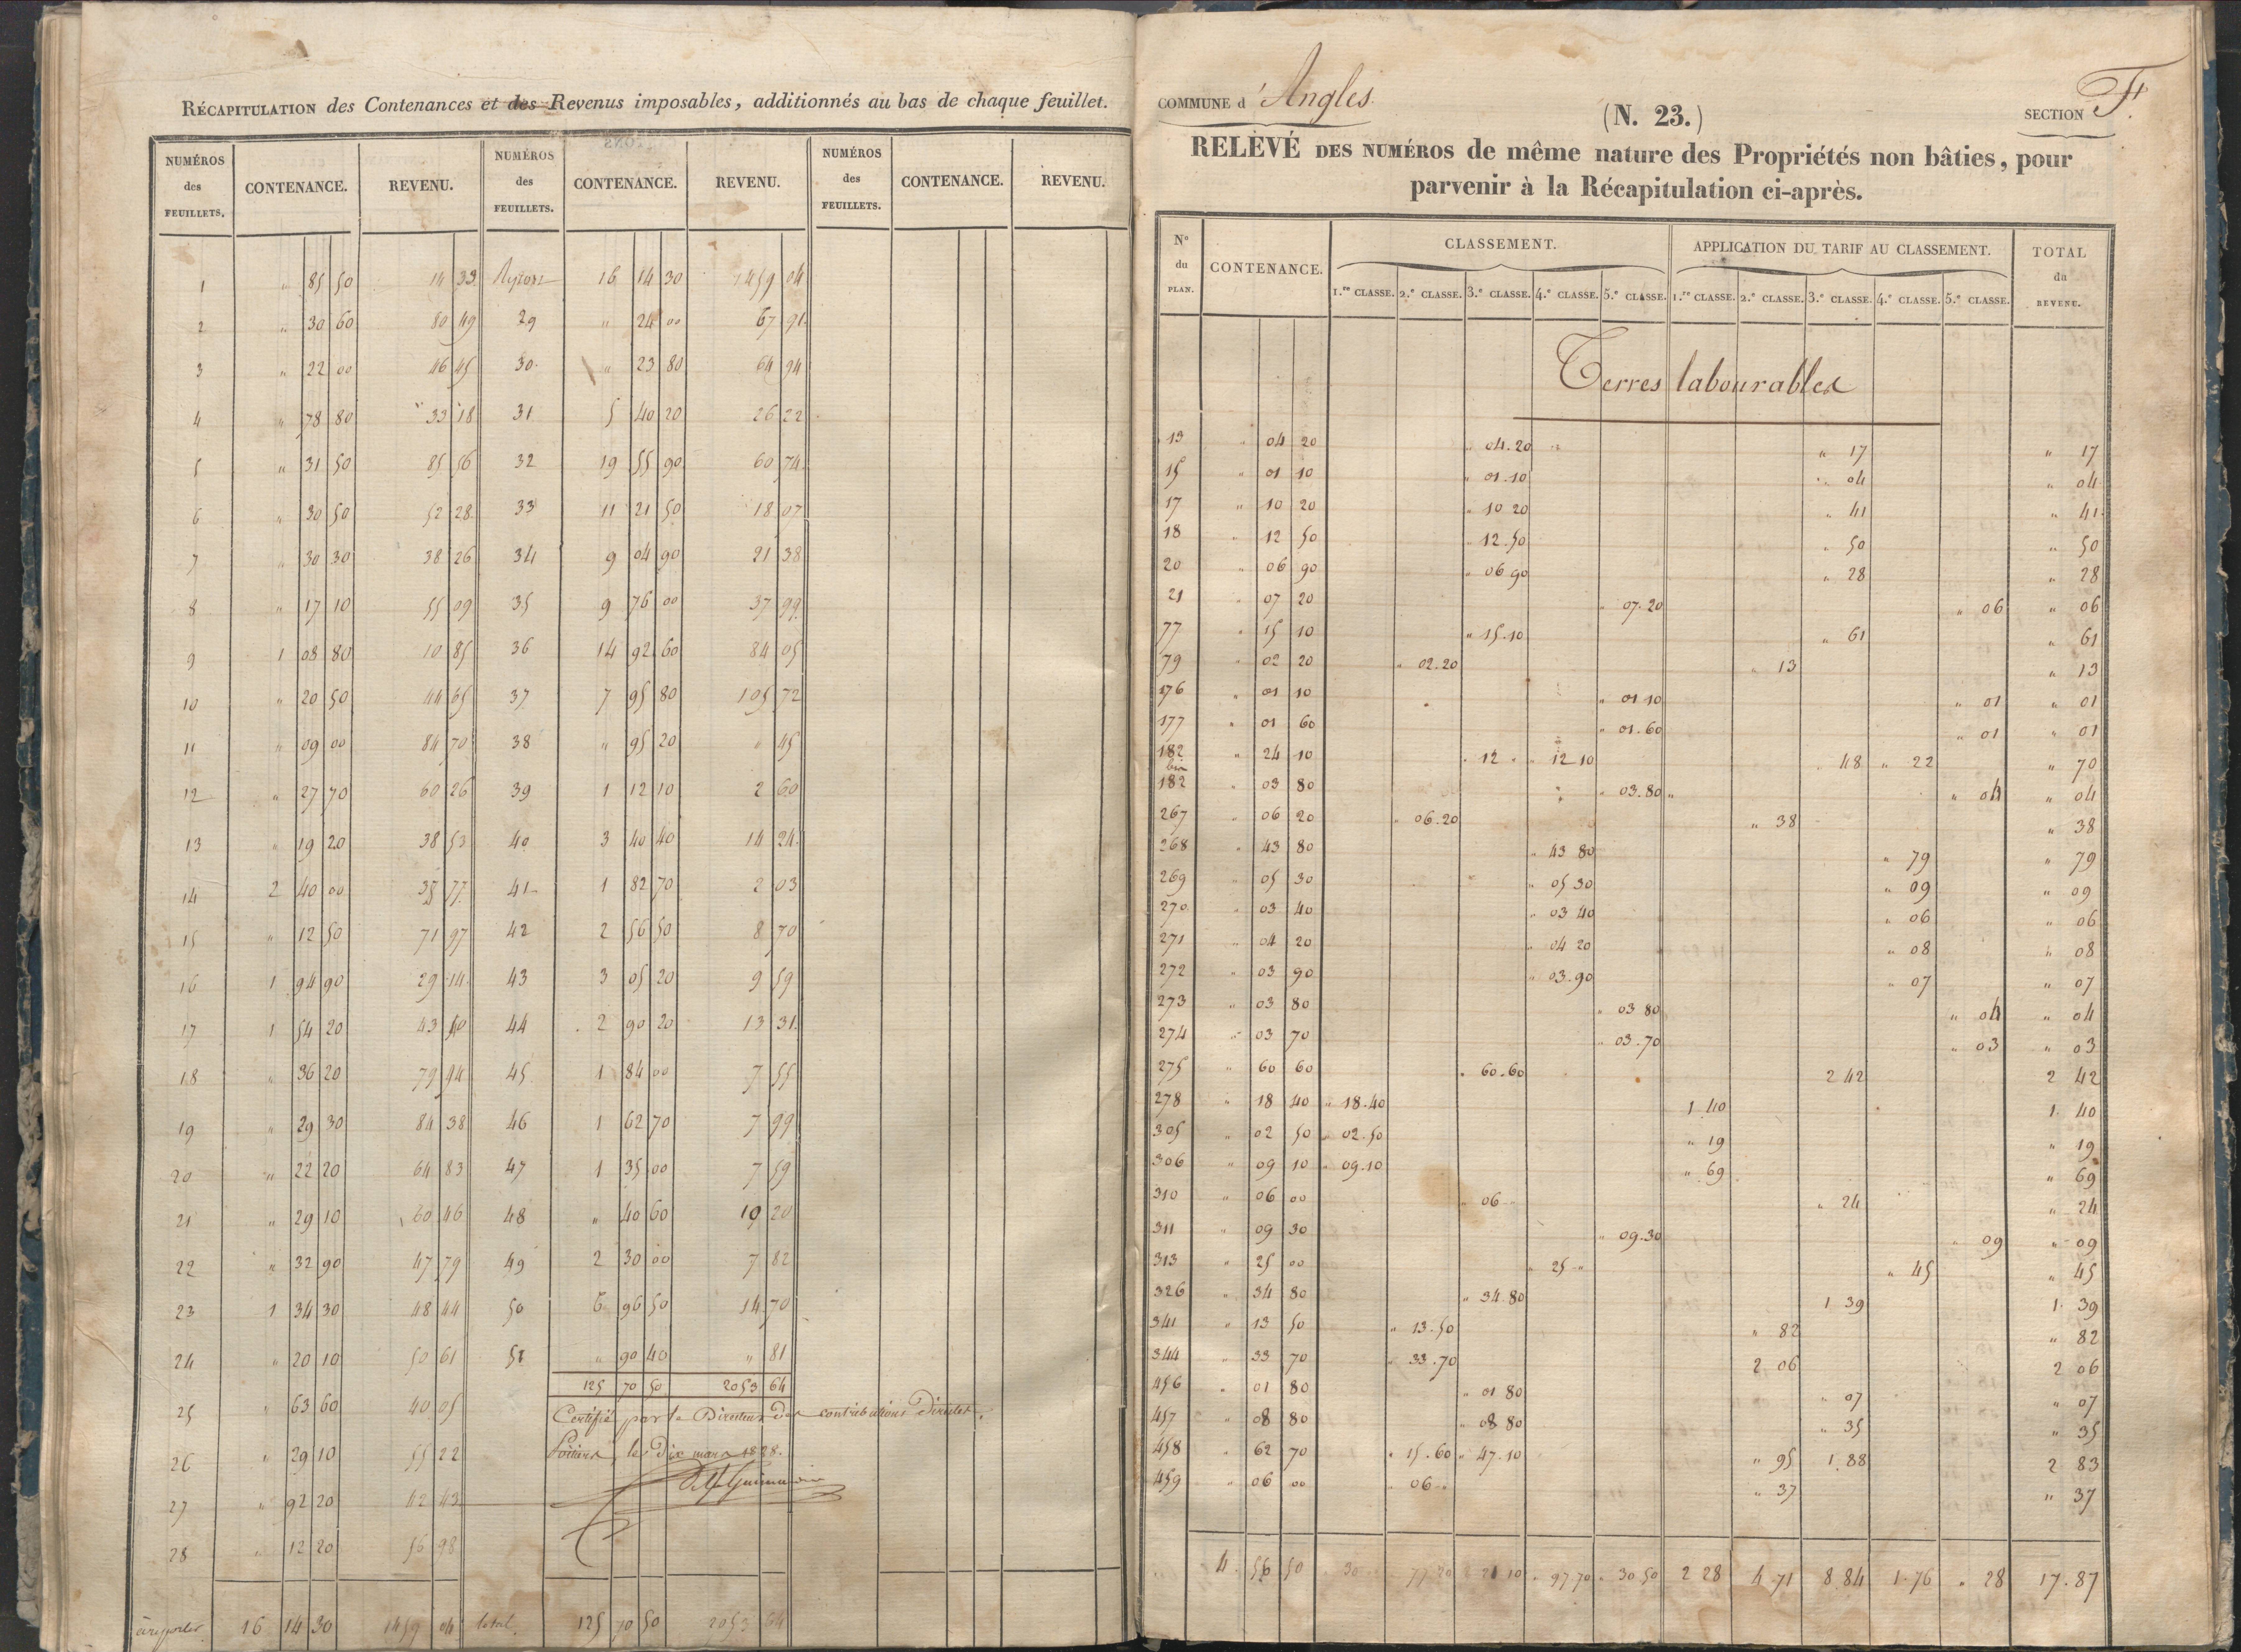 RÉCAPITULATION des Contenances et des Revenus imposables, additionnés au bas de chaque feuillet.
NUMÉROS des FEUILLETS. CONTENANCE. REVENU. NUMÉROS des FEUILLETS. CONTENANCE. REVENU. NUMÉROS des FEUILLETS. CONTENANCE. REVENU.
1 " 85 50 14 33 Report 16 14 30 1459 04
2 " 30 60 80 49 29 " 24 00 67 91
3 " 22 00 46 45 30 " 23 80 64 94
4 " 78 80 33 18 31 5 40 20 26 22
5 " 31 50 85 56 32 19 55 90 60 74
6 " 30 50 52 28 33 11 21 50 18 07
7 " 30 30 38 26 34 9 04 90 21 38
8 " 17 10 55 09 35 9 76 00 37 99
9 1 08 80 10 85 36 14 92 60 84 05
10 " 20 50 44 65 37 7 95 80 105 72
11 " 09 00 84 70 38 " 95 20 " 45
12 " 27 70 60 26 39 1 12 10 2 60
13 " 19 20 38 53 40 3 40 40 14 24
14 2 40 00 35 77 41 1 82 70 2 03
15 " 12 50 71 97 42 2 56 50 8 70
16 1 94 90 29 14 43 3 05 20 9 59
17 1 54 20 43 50 44 2 90 20 13 31
18 " 36 20 79 94 45 1 84 00 7 55
19 " 29 30 84 38 46 1 62 70 7 99
20 " 22 20 64 83 47 1 35 00 7 59
21 " 29 10 60 46 48 " 40 60 19 20
22 " 32 90 47 79 49 2 30 00 7 82
23 1 34 30 48 44 50 6 96 50 14 70
24 " 20 10 50 61 51 " 90 40 " 81
125 70 50 2053 64
25 " 63 60 40 05
Certifié par le Directeur des contributions Directes.
26 " 29 10 55 22
Poitiers, le Dix mars 1828.
27 " 92 20 42 43
28 " 12 20 56 98
à reporter 16 14 30 1459 04 total 125 70 50 2053 64
COMMUNE d'Angles.
(N. 23.)
SECTION F.
RELEVÉ DES NUMÉROS de même nature des Propriétés non bâties, pour
parvenir à la Récapitulation ci-après.
N° du PLAN. CONTENANCE. CLASSEMENT. APPLICATION DU TARIF AU CLASSEMENT. TOTAL du REVENU.
1.re CLASSE. 2.e CLASSE. 3.e CLASSE. 4.e CLASSE. 5.e CLASSE. 1.re CLASSE. 2.e CLASSE. 3.e CLASSE. 4.e CLASSE. 5.e CLASSE.
Terres labourables
13 " 04 20 " 04.20 " 17 " 17
15 " 01 10 " 01.10 " 04 " 04
17 " 10 20 " 10 20 " 41 " 41
18 " 12 50 " 12.50 " 50 " 50
20 " 06 90 " 06 90 " 28 " 28
21 " 07 20 " 07.20 " 06 " 06
77 " 15 10 " 15.10 " 61 " 61
79 " 02 20 " 02.20 " 13 " 13
176 " 01 10 " 01 10 " 01 " 01
177 " 01 60 " 01.60 " 01 " 01
182 " 24 10 " 12 " " 12 10 " 48 " 22 " 70
bis
182 " 03 80 " 03.80 " 04 " 04
267 " 06 20 " 06.20 " 38 " 38
268 " 43 80 " 43 80 " 79 " 79
269 " 05 30 " 05 30 " 09 " 09
270 " 03 40 " 03 40 " 06 " 06
271 " 04 20 " 04 20 " 08 " 08
272 " 03 90 " 03.90 " 07 " 07
273 " 03 80 " 03 80 " 04 " 04
274 " 03 70 " 03.70 " 03 " 03
275 " 60 60 " 60.60 2 42 2 42
278 " 18 40 " 18.40 1 40 1 40
305 " 02 50 " 02.50 " 19 " 19
306 " 09 10 " 09.10 " 69 " 69
310 " 06 00 " 06 " " 24 " 24
311 " 09 30 " 09.30 " 09 " 09
313 " 25 00 " 25 " " 45 " 45
326 " 34 80 " 34.80 1 39 1 39
341 " 13 50 " 13.50 " 82 " 82
344 " 33 70 " 33.70 2 06 2 06
456 " 01 80 " 01 80 " 07 " 07
457 " 08 80 " 08 80 " 35 " 35
458 " 62 70 " 15.60 " 47.10 " 95 1 88 2 83
459 " 06 00 " 06 " " 37 " 37
4 56 50 30 77 20 2 21 10 " 97 70 " 30 50 2 28 4 71 8 84 1.76 " 28 17.87